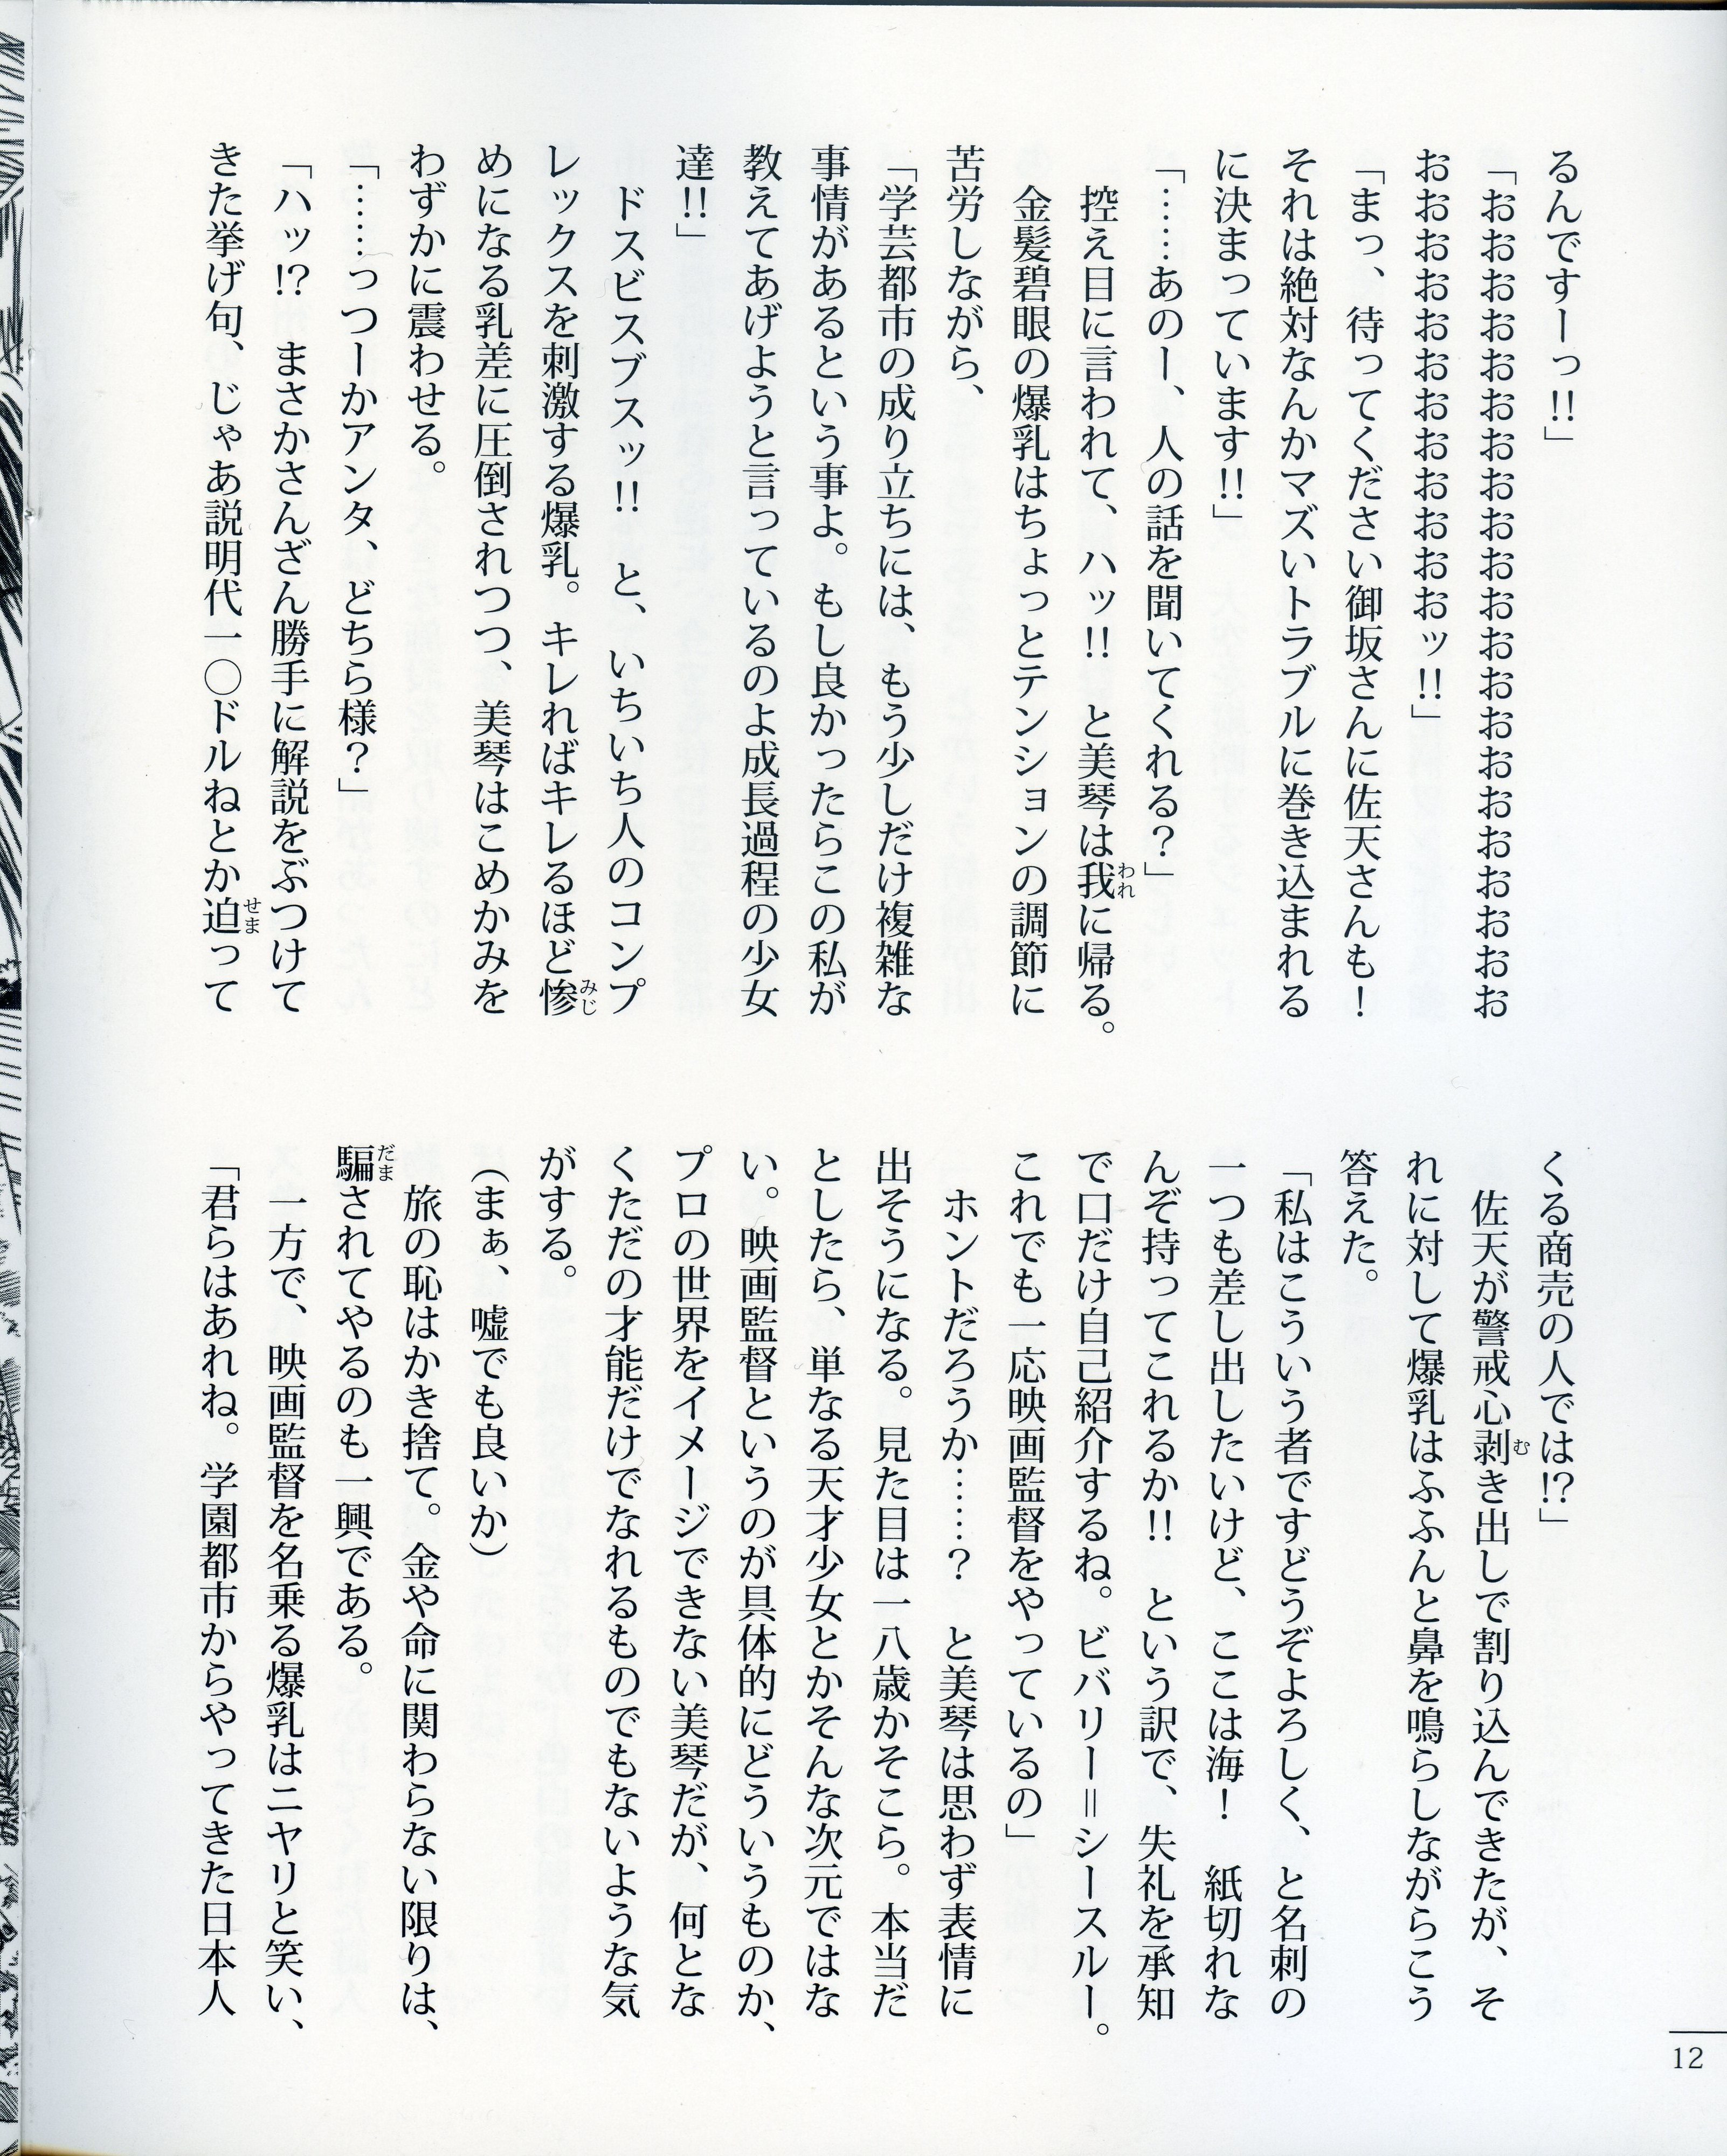 るんですーっ!!」
「おおおおおおおおおおおおおおおおおおおおお
おおおおおおおおおおおおッ!!」
「まっ、待ってください御坂さんに佐天さんも！
それは絶対なんかマズいトラブルに巻き込まれる
に決まっています!!」
「……あのー、人の話を聞いてくれる？」
　控え目に言われて、ハッ!!　と美琴は我に帰る。
　金髪碧眼の爆乳はちょっとテンションの調節に
苦労しながら、
「学芸都市の成り立ちには、もう少しだけ複雑な
事情があるという事よ。もし良かったらこの私が
教えてあげようと言っているのよ成長過程の少女
達!!」
　ドスビスブスッ!!　と、いちいち人のコンプ
レックスを刺激する爆乳。キレればキレるほど惨
めになる乳差に圧倒されつつ、美琴はこめかみを
わずかに震わせる。
「……っつーかアンタ、どちら様？」
「ハッ!?　まさかさんざん勝手に解説をぶつけて
きた挙げ句、じゃあ説明代一〇ドルねとか迫って
くる商売の人では!?」
　佐天が警戒心剥き出しで割り込んできたが、そ
れに対して爆乳はふふんと鼻を鳴らしながらこう
答えた。
「私はこういう者ですどうぞよろしく、と名刺の
一つも差し出したいけど、ここは海！　紙切れな
んぞ持ってこれるか!!　という訳で、失礼を承知
で口だけ自己紹介するね。ビバリー＝シースルー。
これでも一応映画監督をやっているの」
　ホントだろうか……？　と美琴は思わず表情に
出そうになる。見た目は一八歳かそこら。本当だ
としたら、単なる天才少女とかそんな次元ではな
い。映画監督というのが具体的にどういうものか、
プロの世界をイメージできない美琴だが、何とな
くただの才能だけでなれるものでもないような気
がする。
（まぁ、嘘でも良いか）
　旅の恥はかき捨て。金や命に関わらない限りは、
騙されてやるのも一興である。
　一方で、映画監督を名乗る爆乳はニヤリと笑い、
「君らはあれね。学園都市からやってきた日本人
12